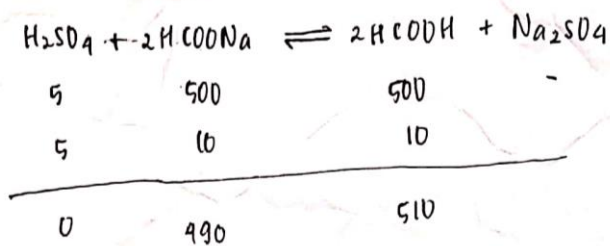 H₂SO₄ + 2HCOONa ⇌ 2HCOOH + Na₂SO₄
5 500 500 -
5 10 10
0 490 510